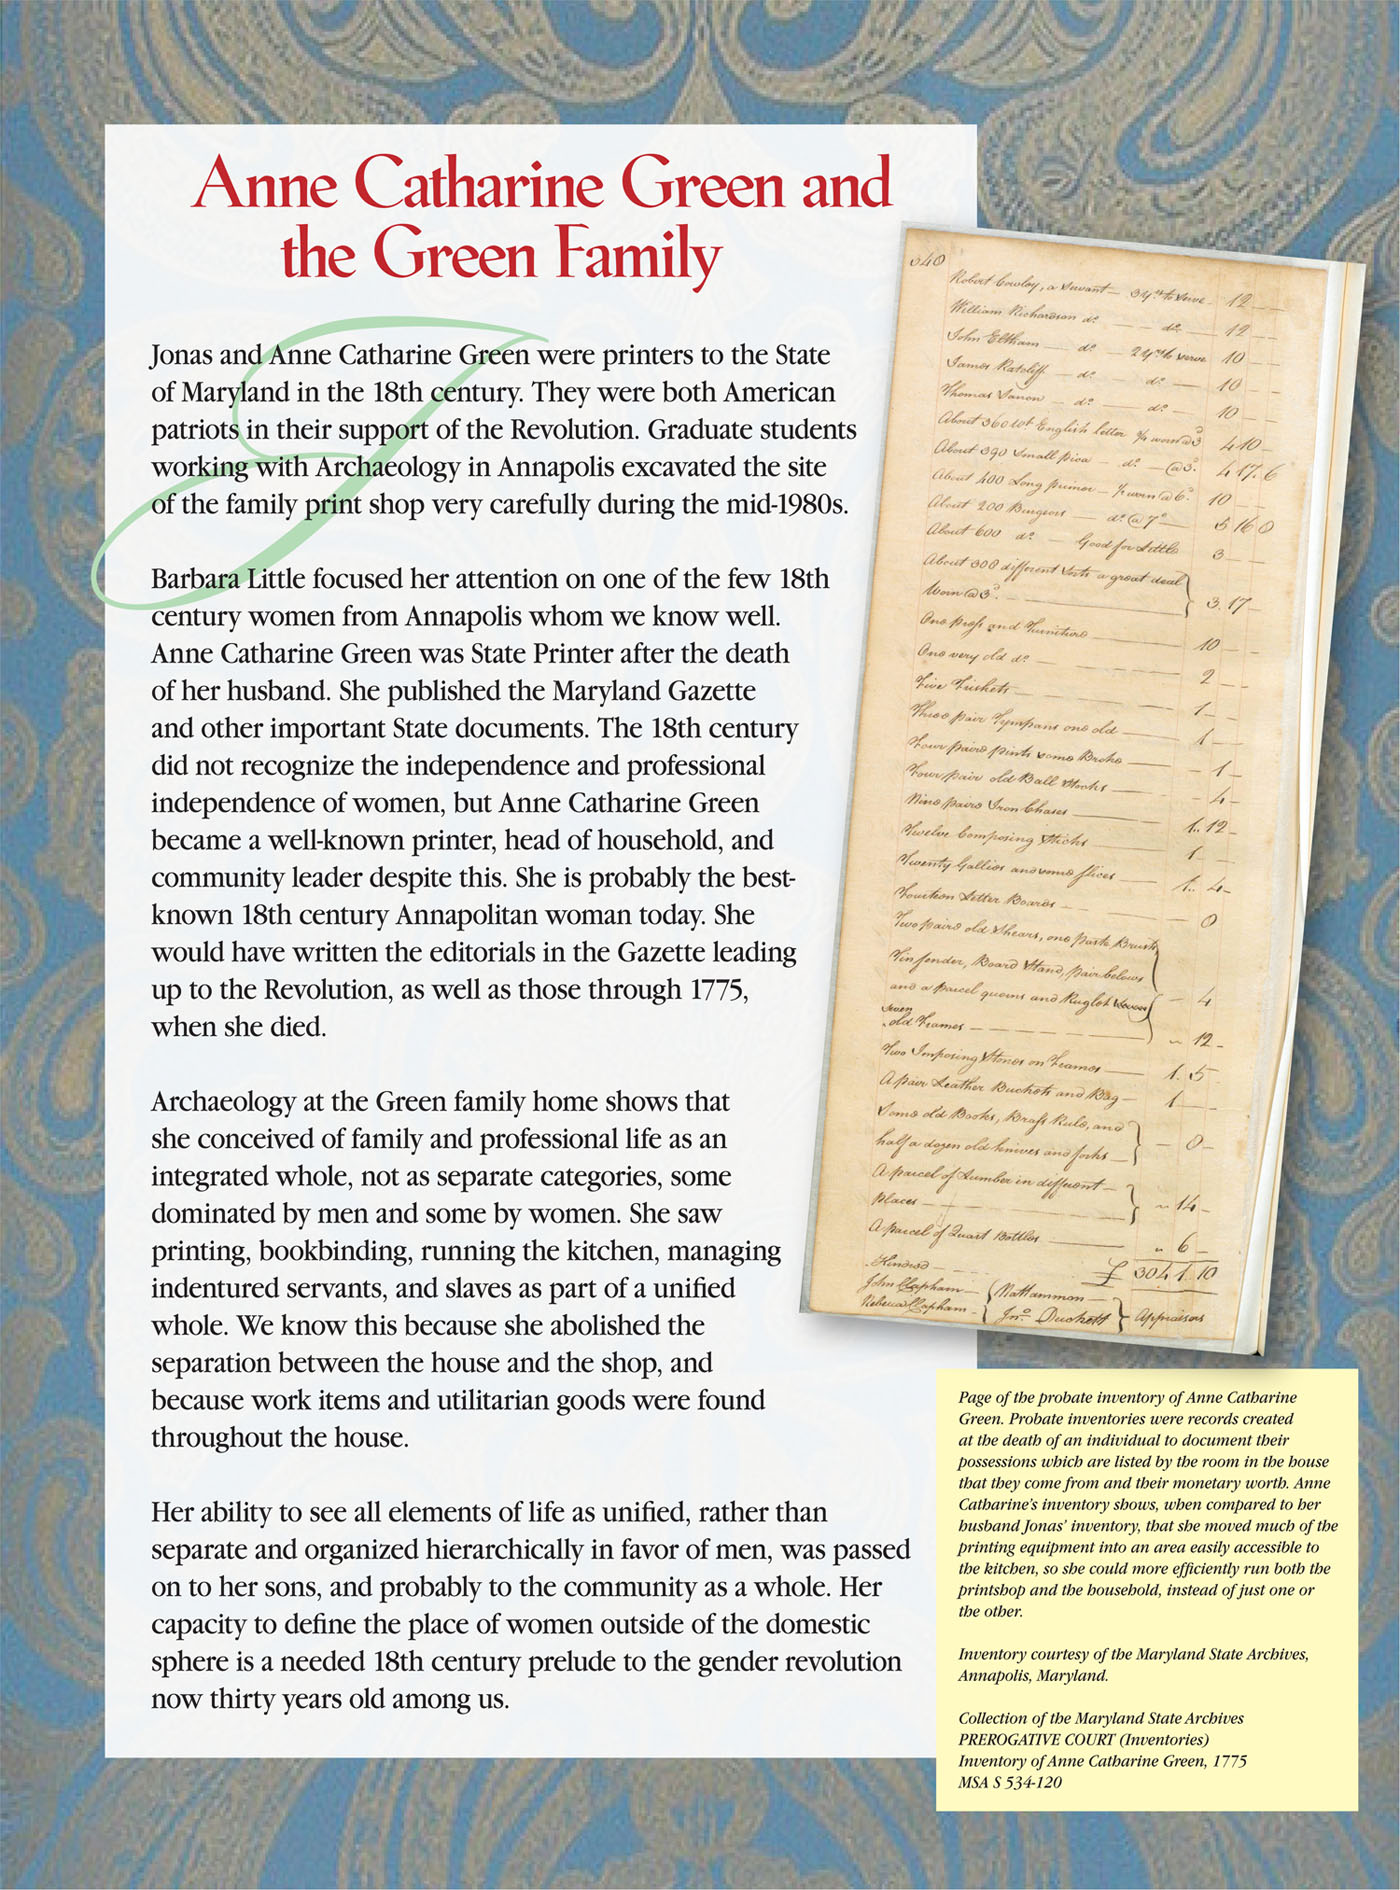 Anne Catharine Green and
the Green Family
Jonas and Anne Catharine Green were printers to the State
of Maryland in the 18th century. They were both American
patriots in their support of the Revolution. Graduate students
working with Archaeology in Annapolis excavated the site
of the family print shop very carefully during the mid-1980s.
Barbara Little focused her attention on one of the few 18th
century women from Annapolis whom we know well.
Anne Catharine Green was State Printer after the death
of her husband. She published the Maryland Gazette
and other important State documents. The 18th century
did not recognize the independence and professional
independence of women, but Anne Catharine Green
became a well-known printer, head of household, and
community leader despite this. She is probably the best-
known 18th century Annapolitan woman today. She
would have written the editorials in the Gazette leading
up to the Revolution, as well as those through 1775,
when she died.
Archaeology at the Green family home shows that
she conceived of family and professional life as an
integrated whole, not as separate categories, some
dominated by men and some by women. She saw
printing, bookbinding, running the kitchen, managing
indentured servants, and slaves as part of a unified
whole. We know this because she abolished the
separation between the house and the shop, and
because work items and utilitarian goods were found
throughout the house.
Her ability to see all elements of life as unified, rather than
separate and organized hierarchically in favor of men, was passed
on to her sons, and probably to the community as a whole. Her
capacity to define the place of women outside of the domestic
sphere is a needed 18th century prelude to the gender revolution
now thirty years old among us.
Robert Cowley, a Servant 12
William Richardson do do 12
John Eltham do 10
James Ratcliff do do 10
Thomas do do 10
About 360 wt English letter
About 390 Small pica do 4 17. 6
About 400 Long primer 10
About 200 do @ 7d 5 16 8
About 600 do Good for Little 3
About 308 different sorts a great deal
Worn @ 3d 3. 17
One press and Furniture 10
One very old do 2
Five 1
Three pair Tympans one old 1
Four pairs some Broke 1
Four pair old Ball Stocks 4
Nine pairs Iron Chases 1. 12
Twelve Composing Sticks 1
Twenty Gallies and some slices 1. 4
Fourteen Letter Boards
Two pairs old Shears, one paste Brush
Tin fender, Board Stand, pair belows
and a parcel 4
old Frames 12
Two Imposing Stones on Frames 1. 5
A pair Leather Buckets and Bag 1
Some old Books, Brass Rule, and
half a dozen old knives and forks
A parcel of Lumber in different
places 14
A parcel of Quart Bottles 6
Kindred £ 304 1 10
John Clapham
Rebecca Clapham Jno. Duckett Appraisers
Page of the probate inventory of Anne Catharine
Green. Probate inventories were records created
at the death of an individual to document their
possessions which are listed by the room in the house
that they come from and their monetary worth. Anne
Catharine's inventory shows, when compared to her
husband Jonas' inventory, that she moved much of the
printing equipment into an area easily accessible to
the kitchen, so she could more efficiently run both the
printshop and the household, instead of just one or
the other.
Inventory courtesy of the Maryland State Archives,
Annapolis, Maryland.
Collection of the Maryland State Archives
PREROGATIVE COURT (Inventories)
Inventory of Anne Catharine Green, 1775
MSA S 534-120